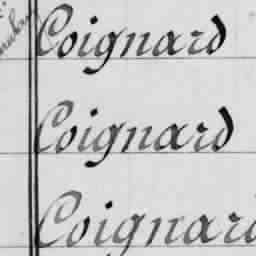 Coignard
Coignard
Coignard